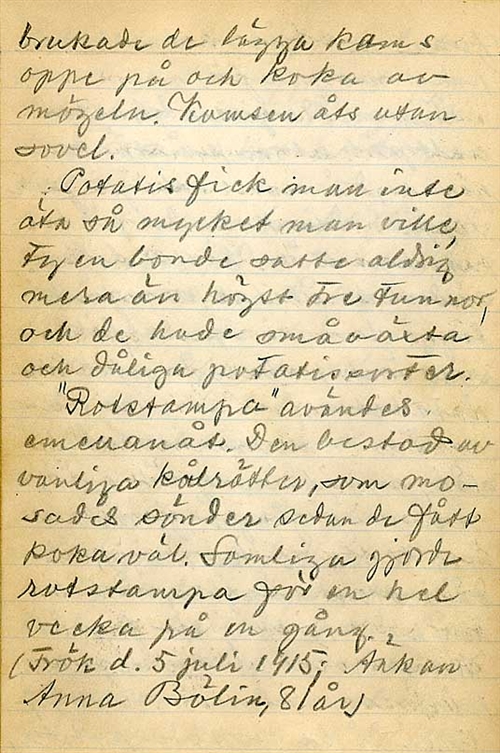 brukade de lägga kams
oppe på och koka av
mögeln. Kamsen åts utan
sovel.
Potatis fick man inte
äta så mycket man ville,
ty en bonde satte aldrig
mera än högst tre tunnor,
och de hade småväxta
och dåliga potatissorter.
"Rotstampa" användes
emellanåt. Den bestod av
vanliga kålrötter, som mo-
sades sönder sedan de fått
koka väl. Somliga gjorde
rotstampa för en hel
vecka på en gång.
(Frök d. 5 juli 1915; Änkan
Anna Bölin, 81 år)